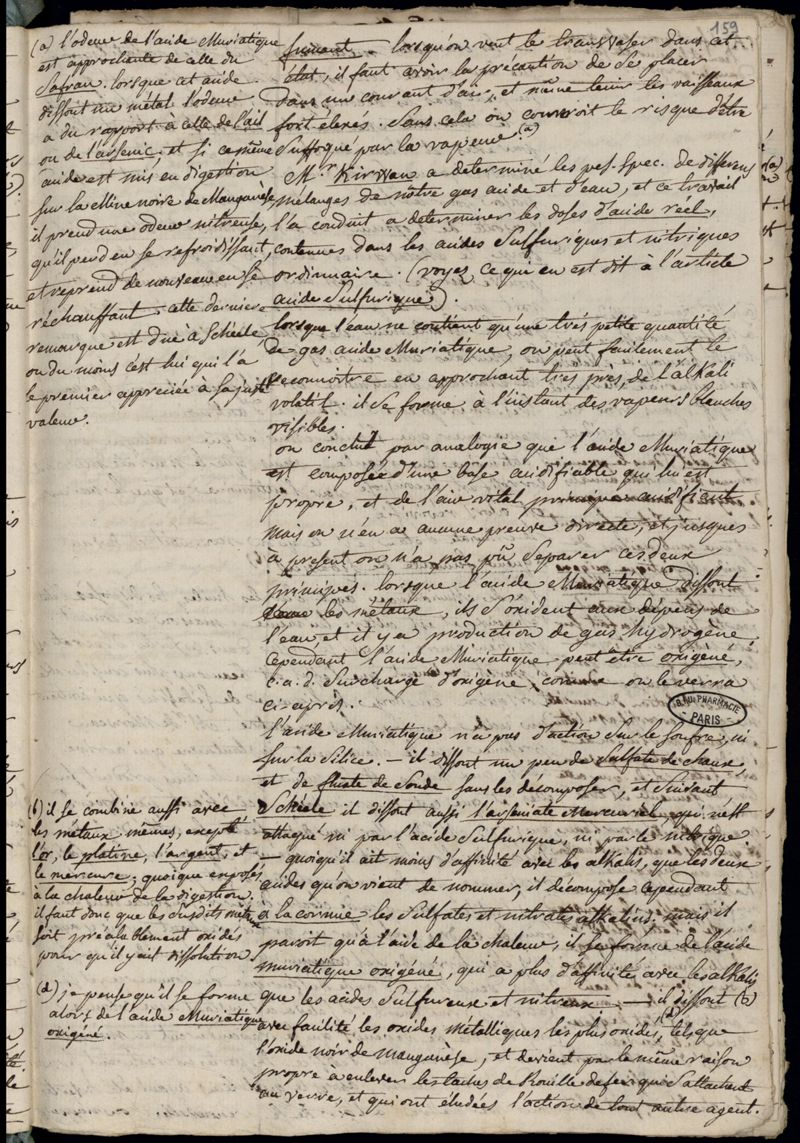 159
fumant. - lorsqu'on veut le transvaser dans cet
état, il faut avoir la précaution de se placer
dans un courant d'air, et même tenir les vaisseaux
fort élevés. Sans cela on courroit le risque d'être
suffoqué par la vapeur (a)
Mr. Kirwan a determiné les pes. spec. de differens
mélanges de notre gas acide et d'eau, et ce travail
l'a conduit a determiner les doses d'acide réel,
contenues dans les acides sulfuriques et nitriques
ordinnaire. (voyez ce qui en est dit à l'article
acide sulfurique).
lorsque l'eau ne contient qu'une très petite quantité
de gas acide Muriatique, on peut facilement le
reconnoitre en approchant très près, de l'alkali
volatil. il se forme à l'instant des vapeurs blanches
visibles.
on conclut par analogie que l'acide Muriatique
est composée d'une base acidifiable qui lui est
propre, et de l'air vital principe acidifiant
mais on n'en a aucune preuve directe, et jusques
à present on n'a pas pû separer ces deux
principes. lorsque l'acide Muriatique dissout
les métaux, ils s'oxident aux dépens de
l'eau et il y a production de gas hydrogène,
cependant l'acide Muriatique peut être oxigéné,
c. a. d. surchargé d'oxigène, comme on le verra
ci-après.
l'acide Muriatique n'a pas d'action sur le soufre, ni
sur la silice. - il dissout un peu de sulfate de chaux,
et de fluate de soude sans les décomposer, et suivant
Schéele il dissout aussi l'arseniate Mercuriel, qui n'est
attaqué ni par l'acide sulfurique, ni par le nitrique
- quoiqu'il ait moins d'affinité avec les alkalis, que les deux
acides qu'on vient de nommer, il décompose cependant
a la cornue les sulfates et nitrates alkalins. mais il
paroit qu'à l'aide de la chaleur, il se forme de l'acide
muriatique oxigéné, qui a plus d'affinité avec les alkalis
que les acides sulfureux et nitreux. - il dissout (b)
avec facilité les oxides métalliques les plus oxidés, (d) tels que
l'oxide noir de manganèse, et devient par la même raison
propre à enlever les taches de Rouille de fer qui s'attachent
au verre, et qui ont éludées l'action de tout autre agent.
(a) l'odeur de l'acide Muriatique
est approchante de celle du
Safran. lorsque cet acide
dissout un métal l'odeur
a du rapport à celle de l'ail
ou de l'arsenic, et si ce même
acide est mis en digestion
sur la Mine noire de Manganèse
il prend une odeur nitreuse,
qu'il perd en se refroidissant,
et reprend de nouveau en se
réchauffant. cette derniere
remarque est due à Schéele
ou du moins c'est lui qui l'a
le premier appreciée à sa juste
valeur.
(b) il se combine aussi avec
les métaux mêmes, excepté
l'or, le platine, l'argent, et
le mercure; quoique exposés
à la chaleur de la digestion.
il faut donc que les susdits métaux
soit préalablement oxidés
pour qu'il y ait dissolution
(d) je pense qu'il se forme
alors de l'acide Muriatique
oxigéné.
B. AU. PHARMACIE
PARIS